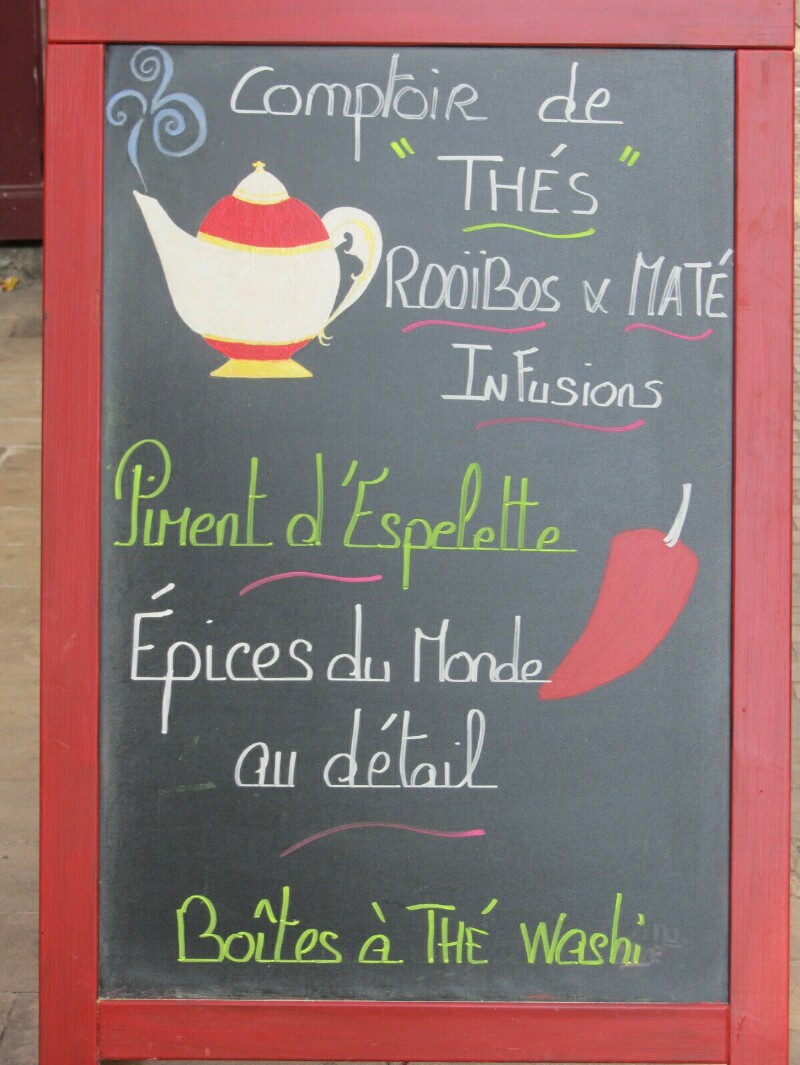 Comptoir de
"THÉS"
ROOÏBOS & MATÉ
INFusions
Piment d'Espelette
Épices du Monde
au détail
Boîtes à THÉ Washi